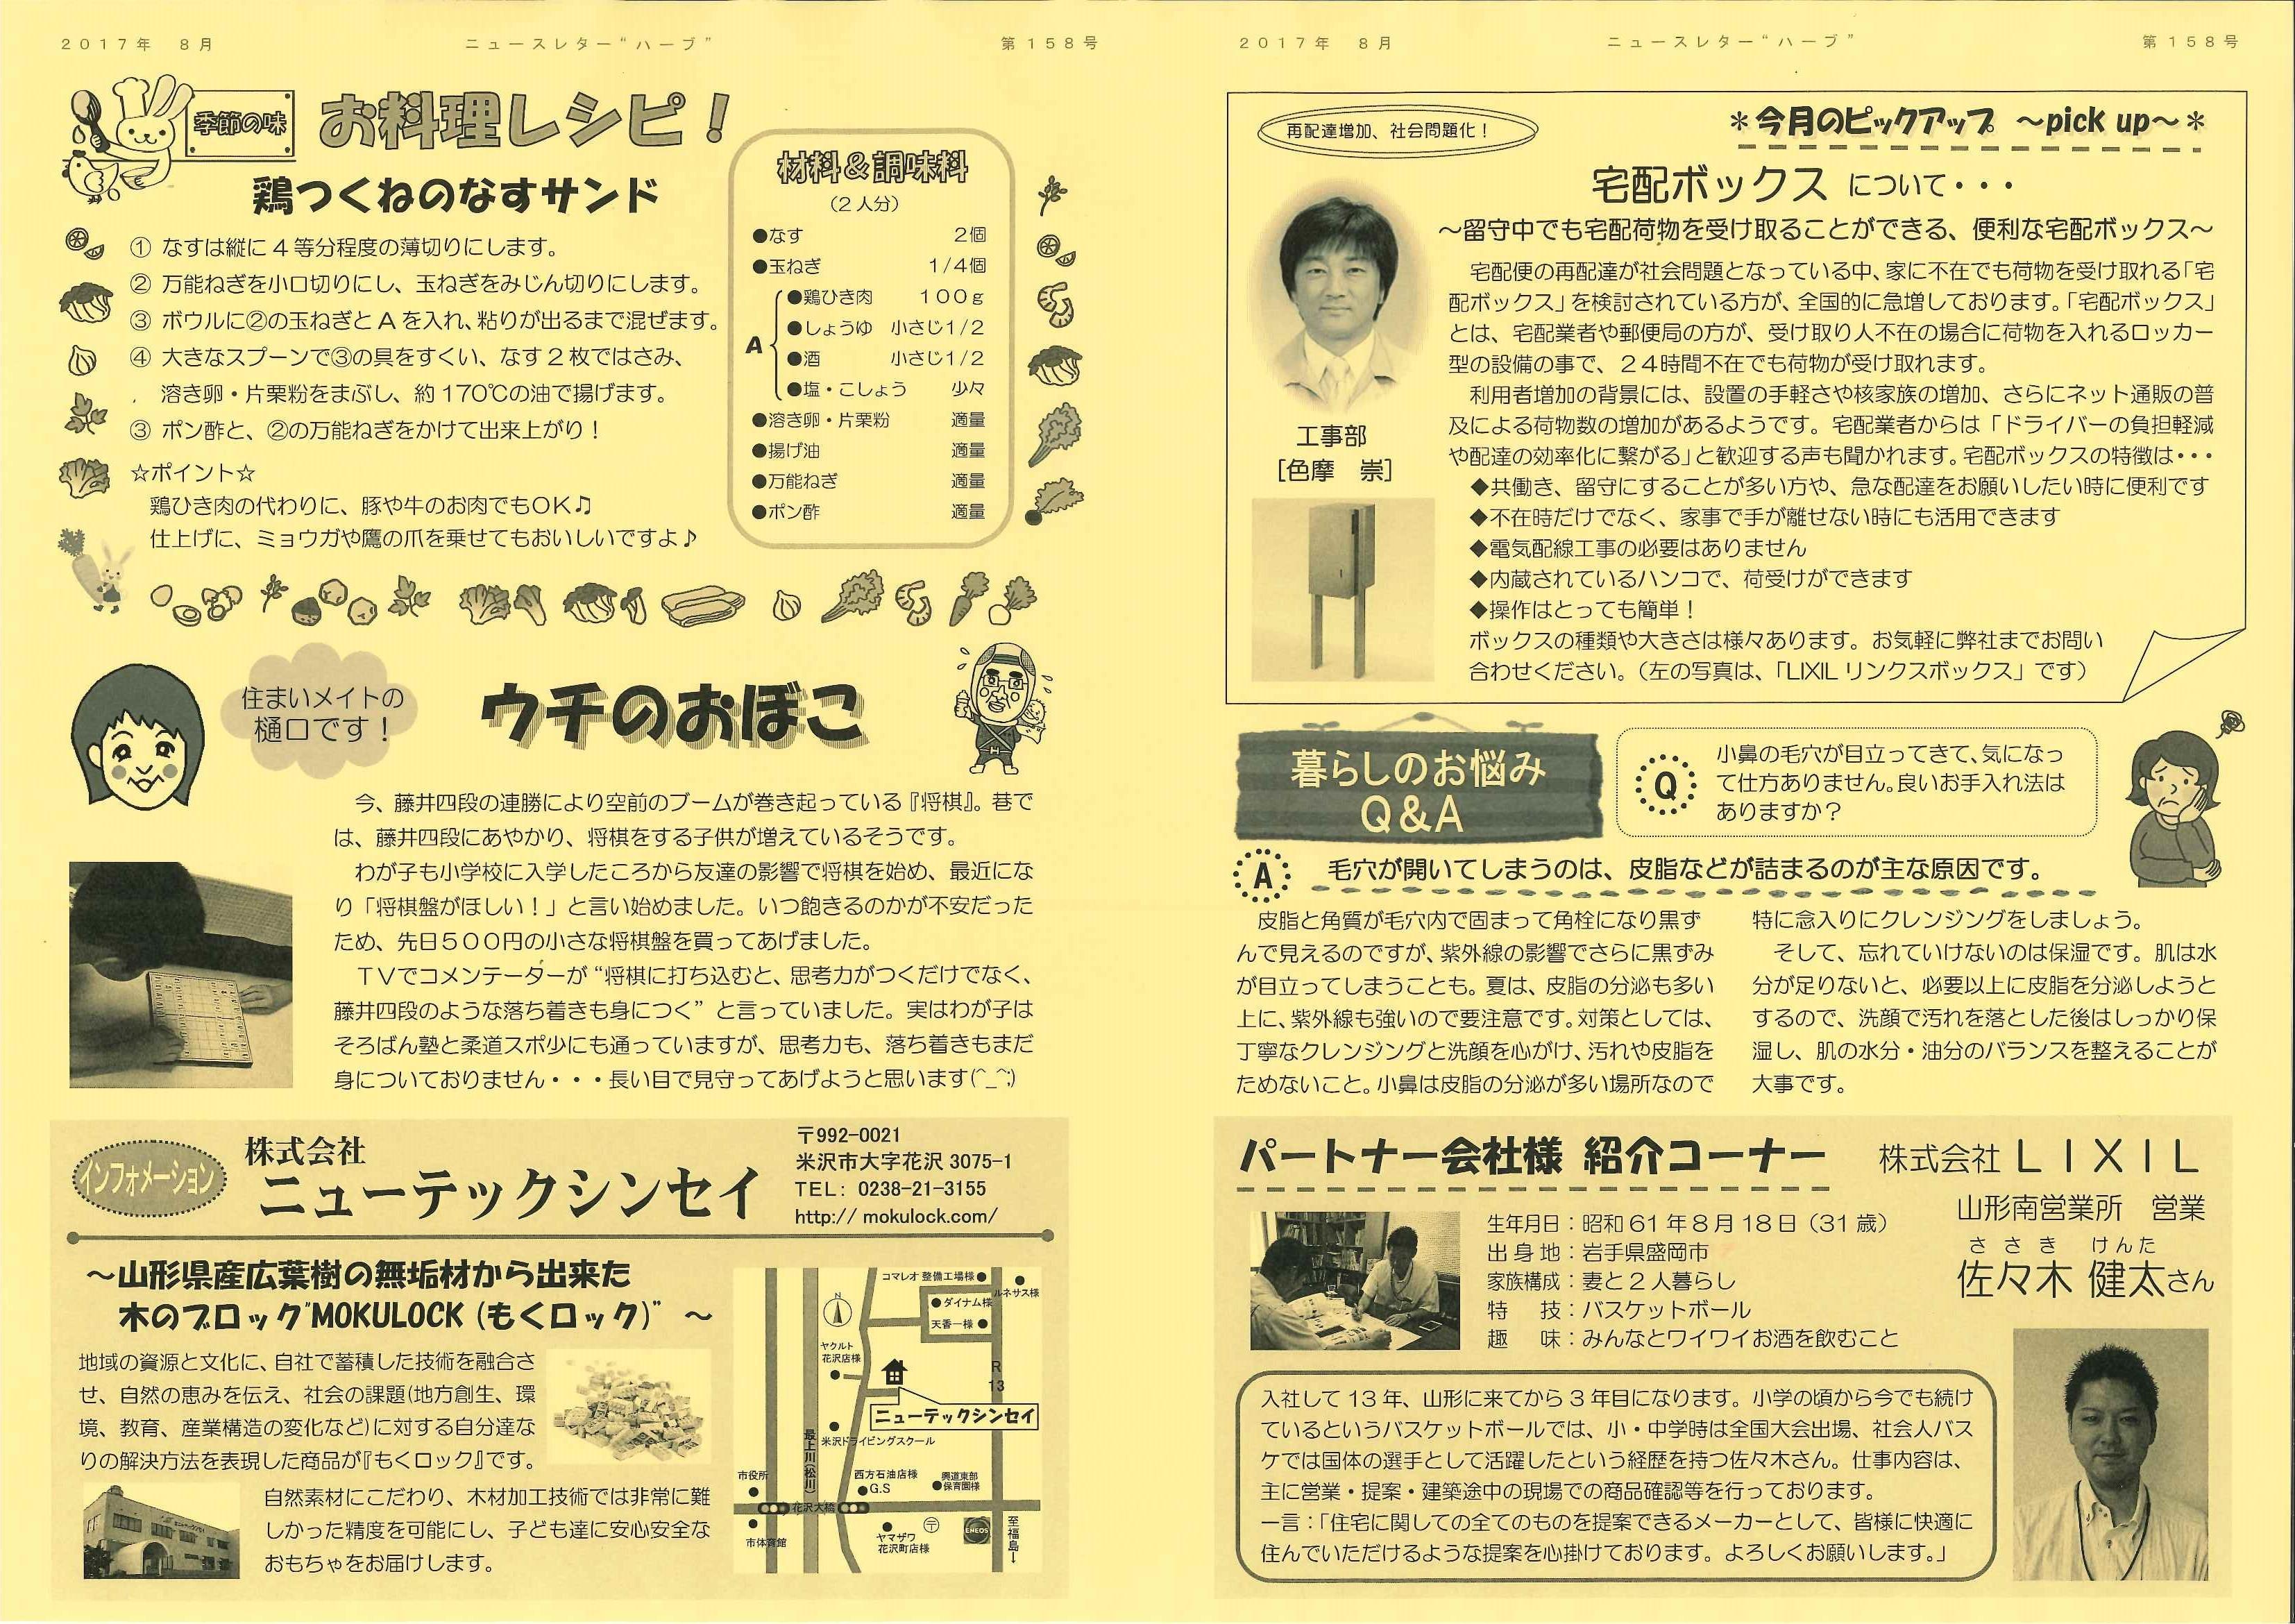 2017年　8月
ニュースレター“ハーブ”
第158号
季節の味
お料理レシピ！
鶏つくねのなすサンド
① なすは縦に4等分程度の薄切りにします。
② 万能ねぎを小口切りにし、玉ねぎをみじん切りにします。
③ ボウルに②の玉ねぎとAを入れ、粘りが出るまで混ぜます。
④ 大きなスプーンで③の具をすくい、なす2枚ではさみ、
溶き卵・片栗粉をまぶし、約170℃の油で揚げます。
③ ポン酢と、②の万能ねぎをかけて出来上がり！
☆ポイント☆
鶏ひき肉の代わりに、豚や牛のお肉でもOK♫
仕上げに、ミョウガや鷹の爪を乗せてもおいしいですよ♪
材料＆調味料
（2人分）
●なす　2個
●玉ねぎ　1/4個
A
●鶏ひき肉　100g
●しょうゆ　小さじ1/2
●酒　小さじ1/2
●塩・こしょう　少々
●溶き卵・片栗粉　適量
●揚げ油　適量
●万能ねぎ　適量
●ポン酢　適量
住まいメイトの
樋口です！
ウチのおぼこ
今、藤井四段の連勝により空前のブームが巻き起っている『将棋』。巷で
は、藤井四段にあやかり、将棋をする子供が増えているそうです。
わが子も小学校に入学したころから友達の影響で将棋を始め、最近にな
り「将棋盤がほしい！」と言い始めました。いつ飽きるのかが不安だった
ため、先日500円の小さな将棋盤を買ってあげました。
TVでコメンテーターが“将棋に打ち込むと、思考力がつくだけでなく、
藤井四段のような落ち着きも身につく”と言っていました。実はわが子は
そろばん塾と柔道スポ少にも通っていますが、思考力も、落ち着きもまだ
身についておりません・・・長い目で見守ってあげようと思います(^_^;)
インフォメーション
株式会社
ニューテックシンセイ
〒992-0021
米沢市大字花沢3075-1
TEL: 0238-21-3155
http:// mokulock.com/
～山形県産広葉樹の無垢材から出来た
木のブロック"MOKULOCK (もくロック)" ～
地域の資源と文化に、自社で蓄積した技術を融合さ
せ、自然の恵みを伝え、社会の課題(地方創生、環
境、教育、産業構造の変化など)に対する自分達な
りの解決方法を表現した商品が『もくロック』です。
自然素材にこだわり、木材加工技術では非常に難
しかった精度を可能にし、子ども達に安心安全な
おもちゃをお届けします。
コマレオ 整備工場様●
ルネサス様
●ダイナム様
天香一様●
N
ヤクルト
花沢店様
R
13
ニューテックシンセイ
米沢ドライビングスクール
最上川(松川)
市役所
西方石油店様
●G.S
興道東部
●保育園様
花沢大橋
市体育館
ヤマザワ
花沢町店様
〒
ENEOS
至福島↓
2017年　8月
ニュースレター“ハーブ”
第158号
再配達増加、社会問題化！
＊今月のピックアップ ～pick up～＊
宅配ボックス について・・・
～留守中でも宅配荷物を受け取ることができる、便利な宅配ボックス～
工事部
[色摩　崇]
宅配便の再配達が社会問題となっている中、家に不在でも荷物を受け取れる「宅
配ボックス」を検討されている方が、全国的に急増しております。「宅配ボックス」
とは、宅配業者や郵便局の方が、受け取り人不在の場合に荷物を入れるロッカー
型の設備の事で、24時間不在でも荷物が受け取れます。
利用者増加の背景には、設置の手軽さや核家族の増加、さらにネット通販の普
及による荷物数の増加があるようです。宅配業者からは「ドライバーの負担軽減
や配達の効率化に繋がる」と歓迎する声も聞かれます。宅配ボックスの特徴は・・・
◆共働き、留守にすることが多い方や、急な配達をお願いしたい時に便利です
◆不在時だけでなく、家事で手が離せない時にも活用できます
◆電気配線工事の必要はありません
◆内蔵されているハンコで、荷受けができます
◆操作はとっても簡単！
ボックスの種類や大きさは様々あります。お気軽に弊社までお問い
合わせください。（左の写真は、「LIXIL リンクスボックス」です）
暮らしのお悩み
Q＆A
Q
小鼻の毛穴が目立ってきて、気になっ
て仕方ありません。良いお手入れ法は
ありますか？
A
毛穴が開いてしまうのは、皮脂などが詰まるのが主な原因です。
皮脂と角質が毛穴内で固まって角栓になり黒ず
んで見えるのですが、紫外線の影響でさらに黒ずみ
が目立ってしまうことも。夏は、皮脂の分泌も多い
上に、紫外線も強いので要注意です。対策としては、
丁寧なクレンジングと洗顔を心がけ、汚れや皮脂を
ためないこと。小鼻は皮脂の分泌が多い場所なので
特に念入りにクレンジングをしましょう。
そして、忘れていけないのは保湿です。肌は水
分が足りないと、必要以上に皮脂を分泌しようと
するので、洗顔で汚れを落とした後はしっかり保
湿し、肌の水分・油分のバランスを整えることが
大事です。
パートナー会社様 紹介コーナー
株式会社ＬＩＸＩＬ
山形南営業所　営業
ささき　けんた
佐々木 健太さん
生年月日：昭和61年8月18日（31歳）
出身地：岩手県盛岡市
家族構成：妻と2人暮らし
特　技：バスケットボール
趣　味：みんなとワイワイお酒を飲むこと
入社して13年、山形に来てから3年目になります。小学の頃から今でも続け
ているというバスケットボールでは、小・中学時は全国大会出場、社会人バス
ケでは国体の選手として活躍したという経歴を持つ佐々木さん。仕事内容は、
主に営業・提案・建築途中の現場での商品確認等を行っております。
一言：「住宅に関しての全てのものを提案できるメーカーとして、皆様に快適に
住んでいただけるような提案を心掛けております。よろしくお願いします。」